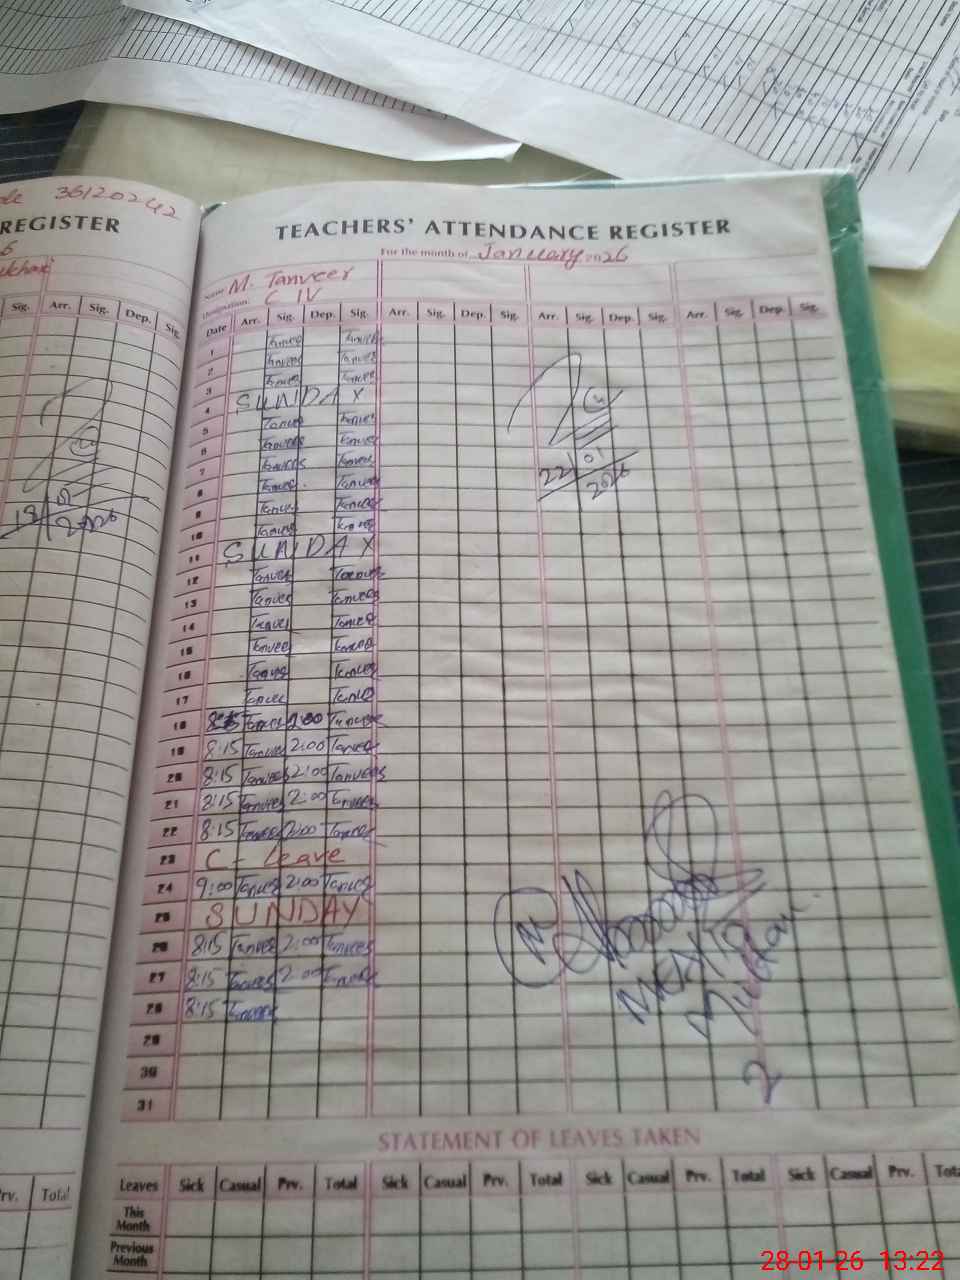 36120242
REGISTER
Sig. Arr. Sig. Dep. Sig.
18/01/2026
TEACHERS' ATTENDANCE REGISTER
For the month of January 2026
Name M. Tanveer
Designation: C IV
Date Arr. Sig. Dep. Sig. Arr. Sig. Dep. Sig. Arr. Sig. Dep. Sig. Arr. Sig. Dep. Sig.
1 Tanveer Tanveer
2 Tanveer Tanveer
3 Tanveer Tanveer
4 SUNDAY
5 Tanveer Tanveer
6 Tanveer Tanveer
7 Tanveer Tanveer
8 Tanveer Tanveer
9 Tanveer Tanveer
10 Tanveer Tanveer
11 SUNDAY
12 Tanveer Tanveer
13 Tanveer Tanveer
14 Tanveer Tanveer
15 Tanveer Tanveer
16 Tanveer Tanveer
17 Tanveer Tanveer
18 8:15 Tanveer 2:00 Tanveer
19 8:15 Tanveer 2:00 Tanveer
20 8:15 Tanveer 2:00 Tanveer
21 8:15 Tanveer 2:00 Tanveer
22 8:15 Tanveer 2:00 Tanveer
23 C - Leave
24 9:00 Tanveer 2:00 Tanveer
25 SUNDAY
26 8:15 Tanveer 2:00 Tanveer
27 8:15 Tanveer 2:00 Tanveer
28 8:15 Tanveer
29
30
31
22/01/2026
STATEMENT OF LEAVES TAKEN
Prv. Total
Leaves Sick Casual Prv. Total Sick Casual Prv. Total Sick Casual Prv. Total Sick Casual Prv. Total
This Month
Previous Month
28-01-26 13:22